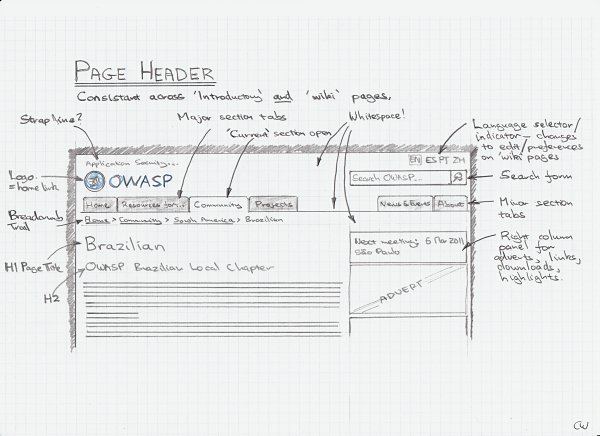 PAGE HEADER
Consistant across 'Introductory' and 'wiki' pages.
Strapline?
Major section tabs
Whitespace!
'Current' section open
Language selector/
indicator – changes
to edit/preferences
on 'wiki pages
Application Security...
EN ES PT ZH
Logo
= home link
OWASP
Search OWASP...
Search form
Home
Resources for...
Community
Projects
News & Events
About
Minor section
tabs
Breadcrumb
Trail
Home > Community > South America > Brazilian
H1 Page Title
Brazilian
Next meeting: 6 Mar 2011
São Paulo
Right column
panel for
adverts, links,
downloads,
highlights.
H2
OWASP Brazilian Local Chapter
ADVERT
CW